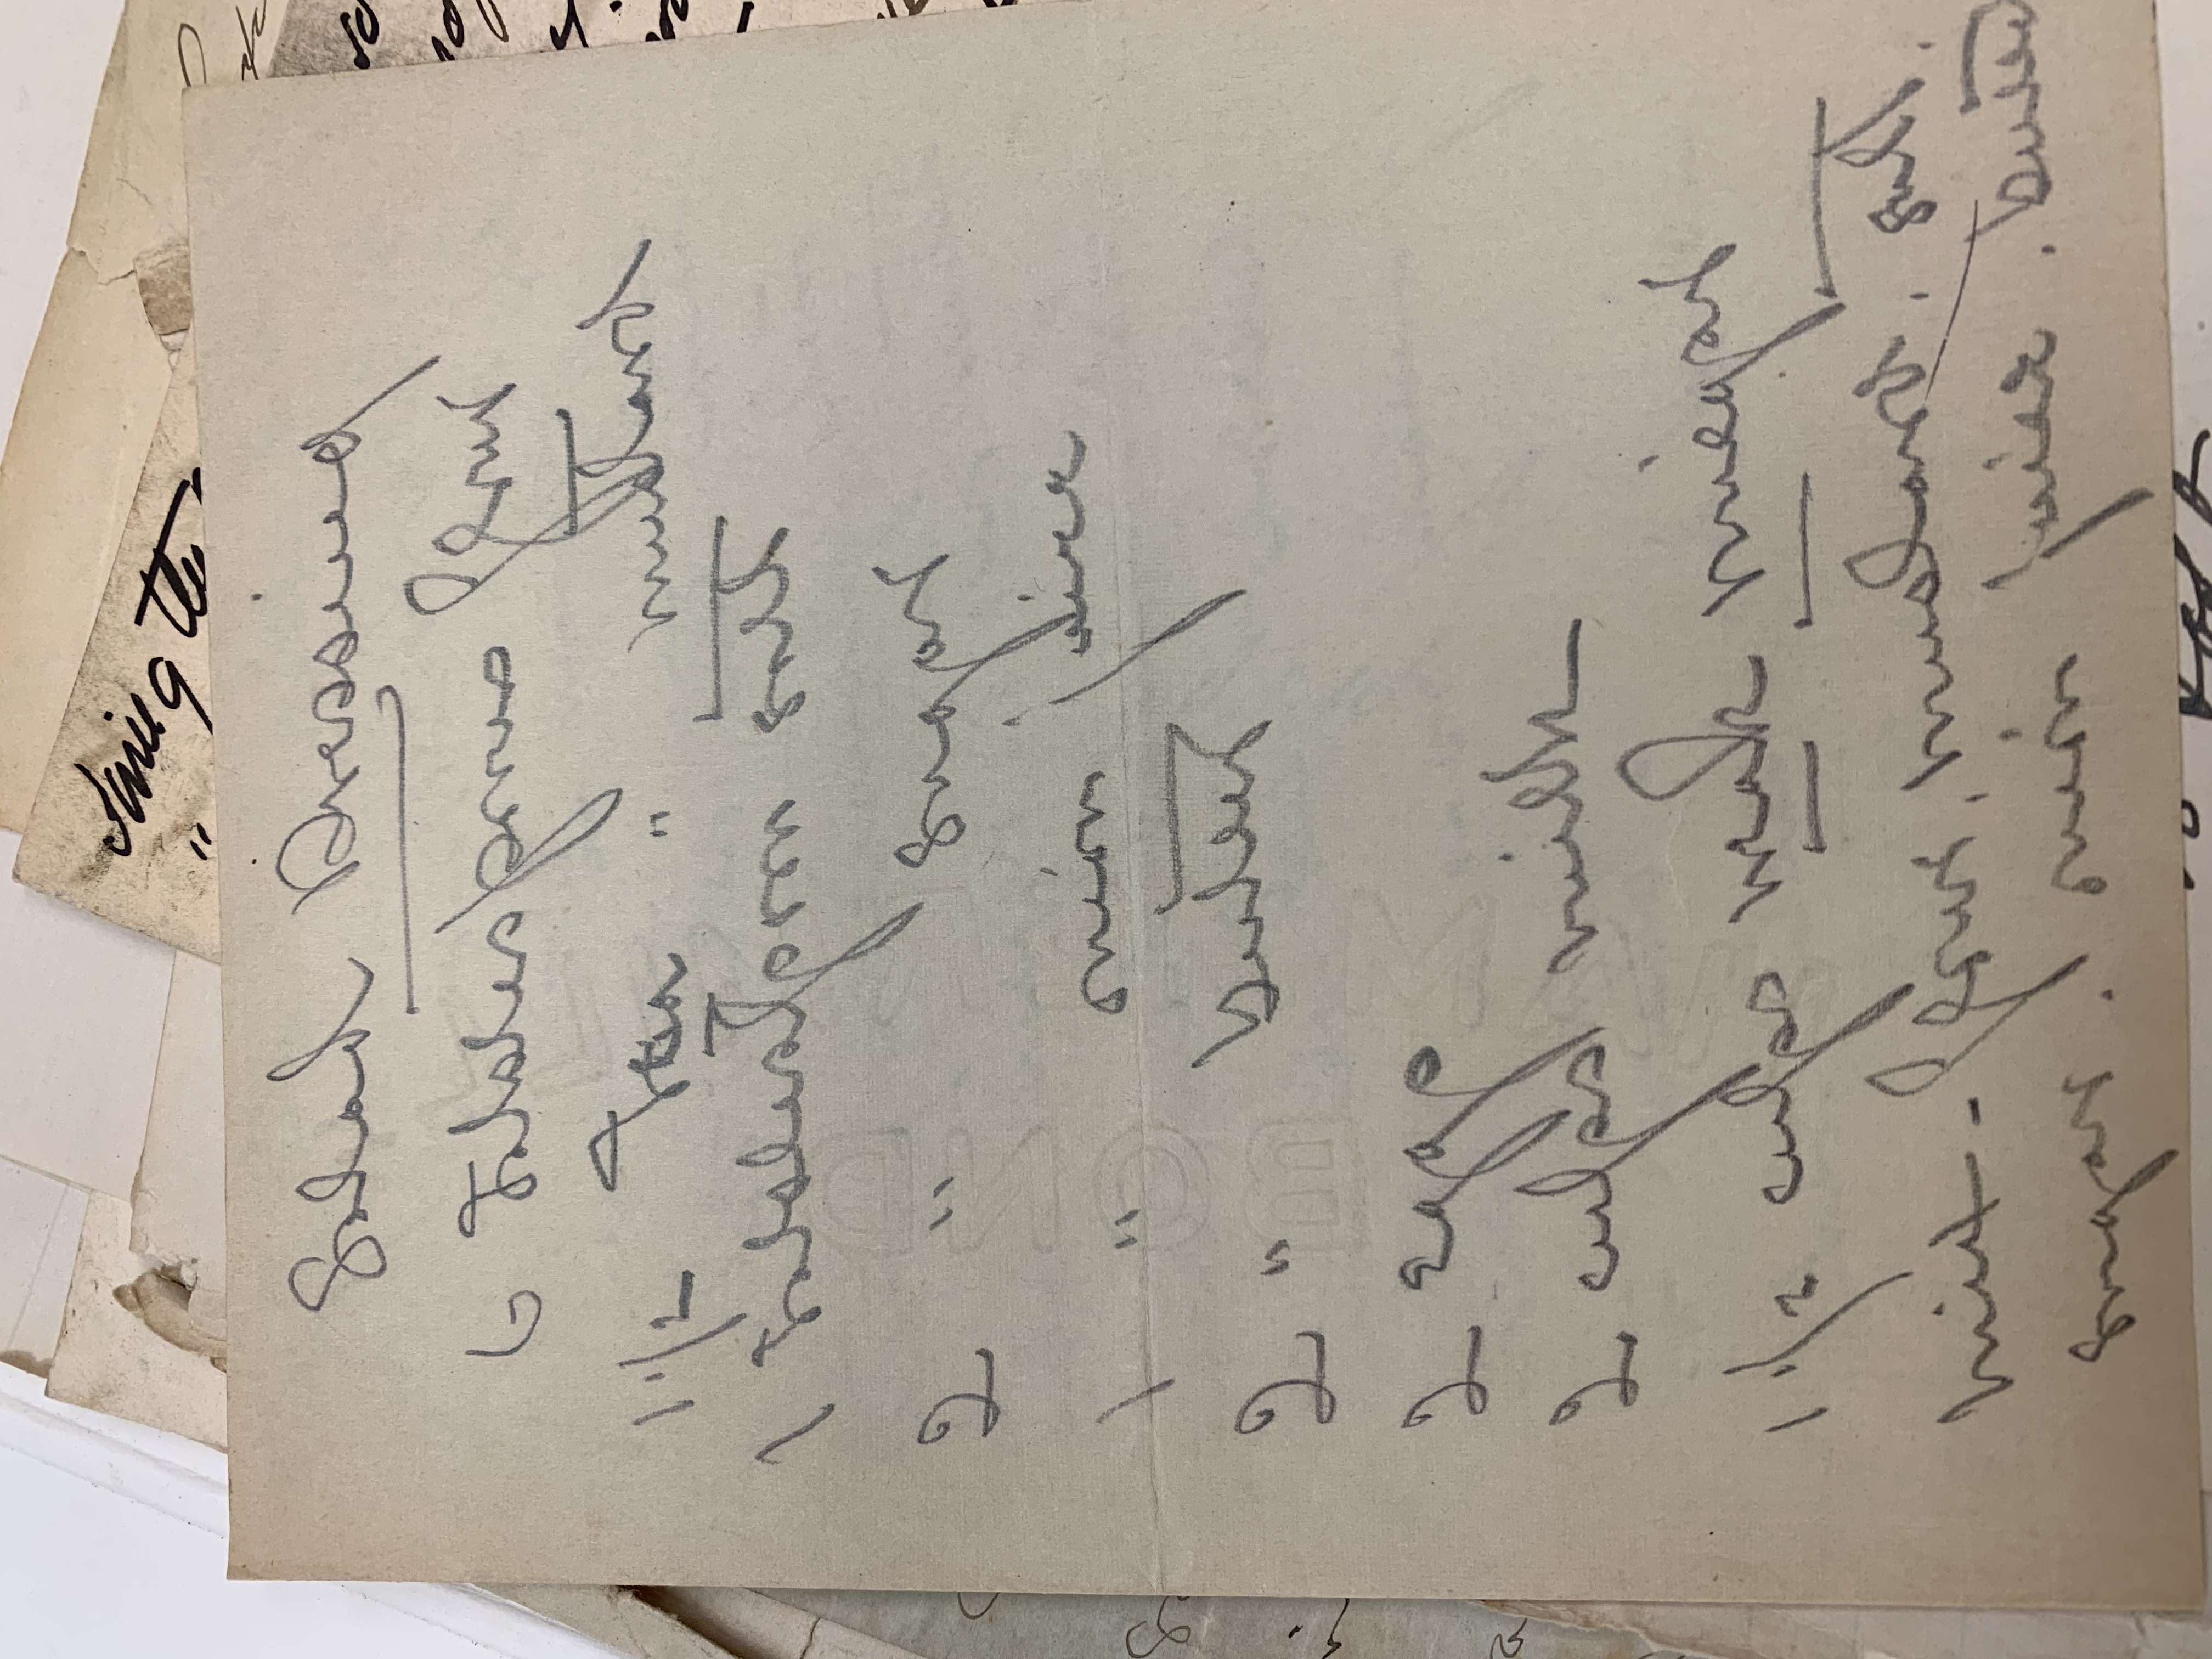 Salad Dressing
6 Tablespoons flour
1 1/2 Tea " mustard
1 Tablespoon salt
2 " sugar
1 " onion juice
2 " butter
2 Eggs
2 cups milk
1 1/2 cups weak vinegar
Mix - flour, mustard, salt,
sugar. onion juice. butter